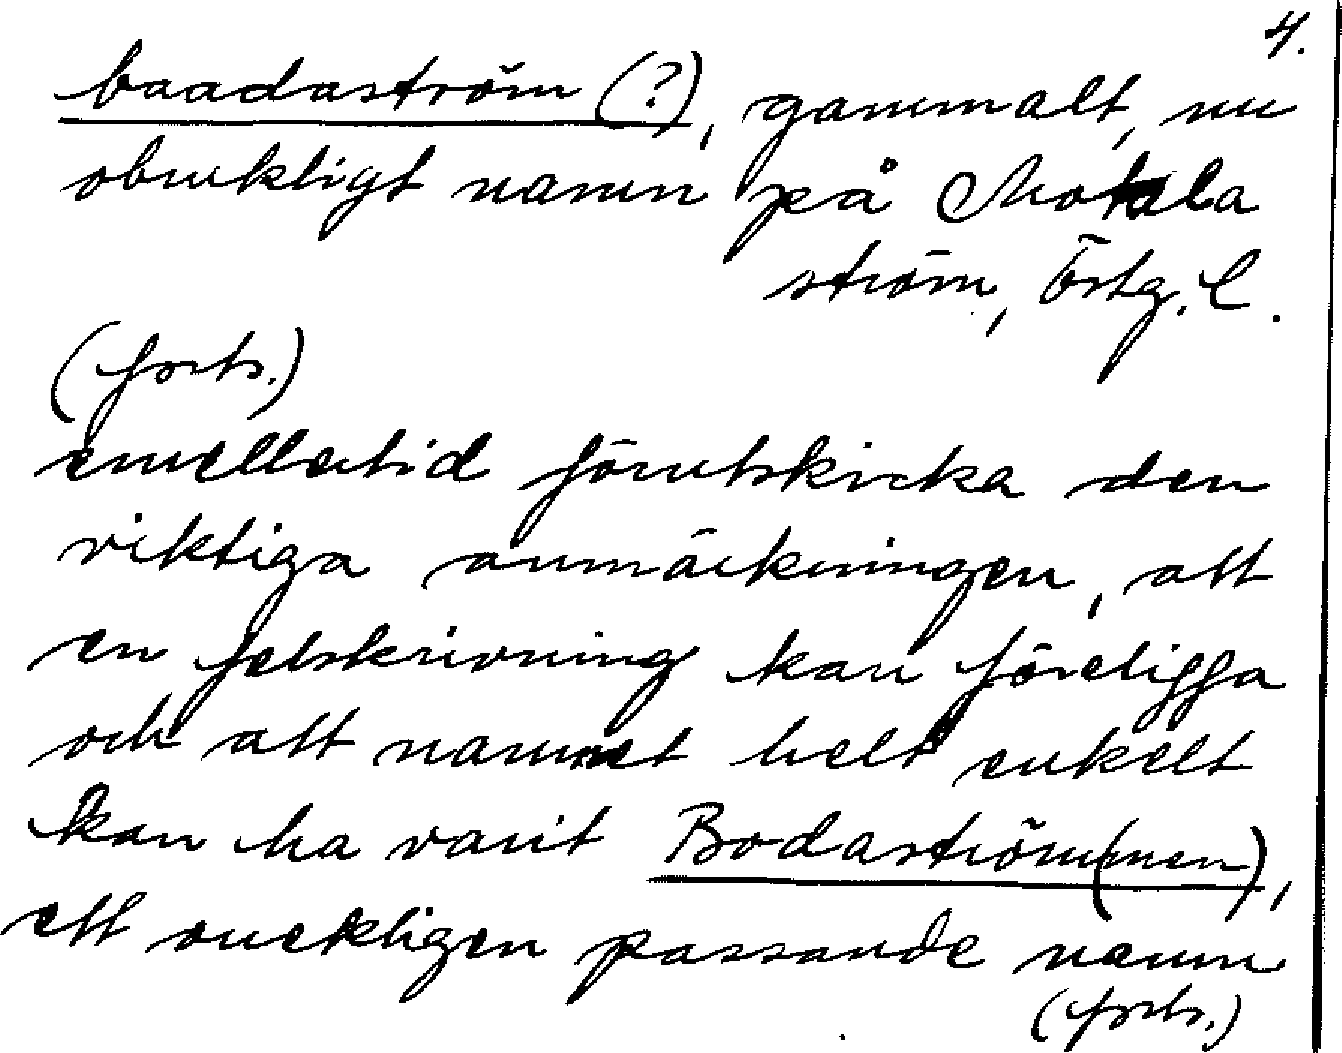 4.
baadaström (?), gammalt, nu
obrukligt namn på Motala
ström, Östg. l.
(forts.)
emellertid förutskicka den
viktiga anmärkningen, att
en felskrivning kan föreligga
och att namnet helt enkelt
kan ha varit Bodaström(men),
ett verkligen passande namn
(forts.)